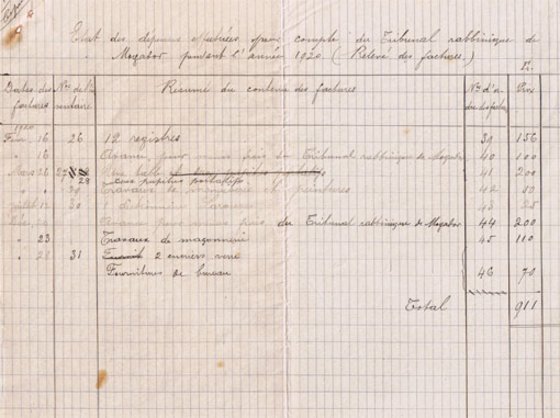 Etat des dépenses effectuées pour compte du Tribunal rabbinique de
Mogador pendant l'année 1920 (Relevé des factures)
Fr.
Dates des factures Nos de l'inventaire Résumé du contenu des factures Nos d'ordre des factures Prix
1920
16 26 12 registres 39 156
" 16 pour menus frais du Tribunal rabbinique de Mogador 40 100
Mars 26 27 Une table 41 200
28 pupitres portatifs
" 29 Travaux de menuiserie et peintures 42 50
12 30 dictionnaire Larousse 43 25
menus frais du Tribunal rabbinique de Mogador 44 200
" 23 Travaux de maçonnerie 45 110
" 28 31 2 encriers verre
Fournitures de bureau 46 70
Total 911